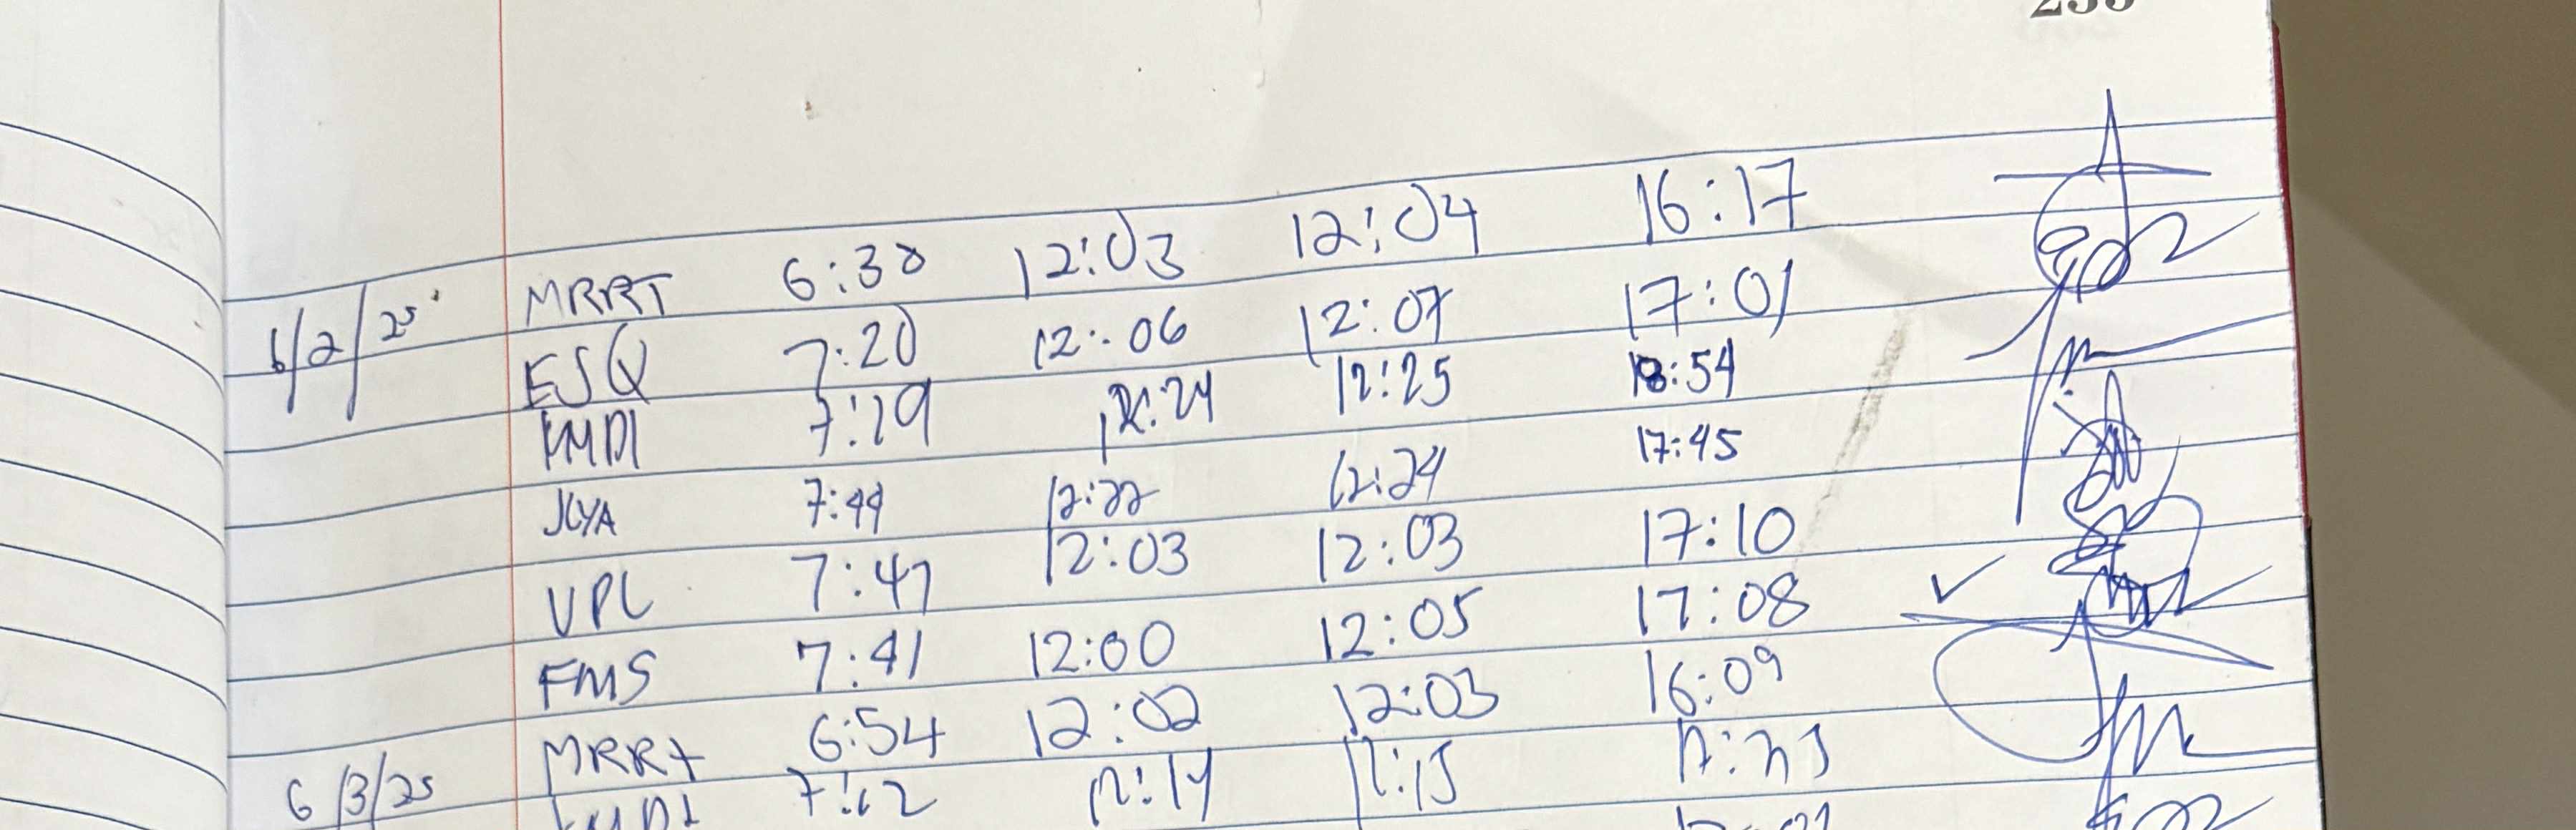 6/2/25 MRRT 6:38 12:03 12:04 16:17
ESQ 7:20 12:06 12:07 17:01
KMDI 7:19 12:24 12:25 18:54
JLYA 7:44 12:22 12:24 17:45
VPL 7:47 12:03 12:03 17:10
FMS 7:41 12:00 12:05 17:08 ✓
6/3/25 MRRT 6:54 12:02 12:03 16:09
KMDI 7:12 12:14 12:15